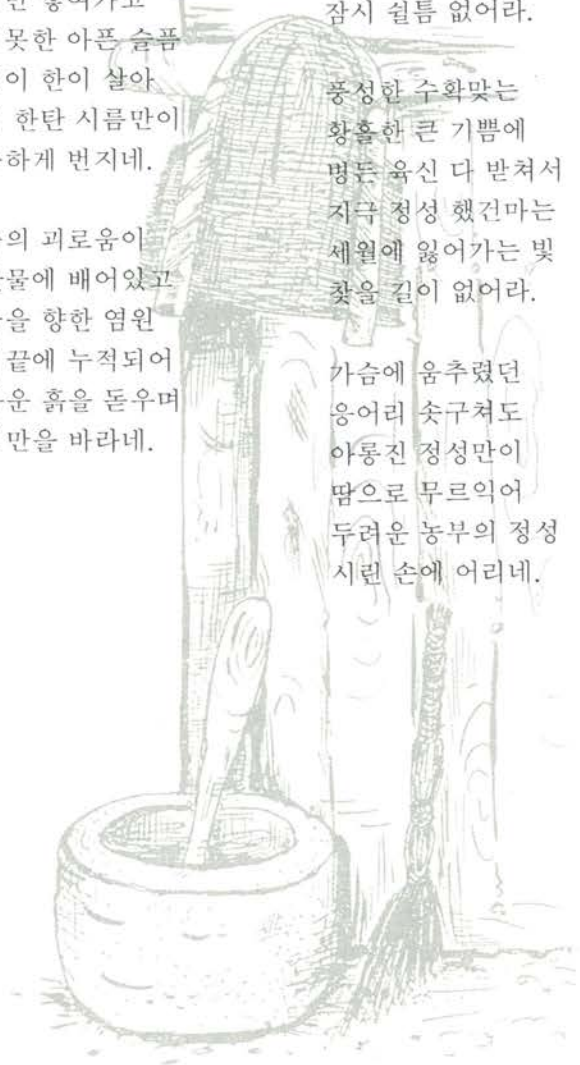 못한 아픈 슬픔
이 한이 살아
한탄 시름만이
하게 번지네.
의 괴로움이
물에 배어있고
을 향한 염원
끝에 누적되어
운 흙을 돋우며
만을 바라네.
잠시 쉴틈 없어라.
풍성한 수확맞는
황홀한 큰 기쁨에
병든 육신 다 받쳐서
지극 정성 했건마는
세월에 잃어가는 빛
찾을 길이 없어라.
가슴에 움추렸던
응어리 솟구쳐도
아롱진 정성만이
땀으로 무르익어
두려운 농부의 정성
시린 손에 어리네.